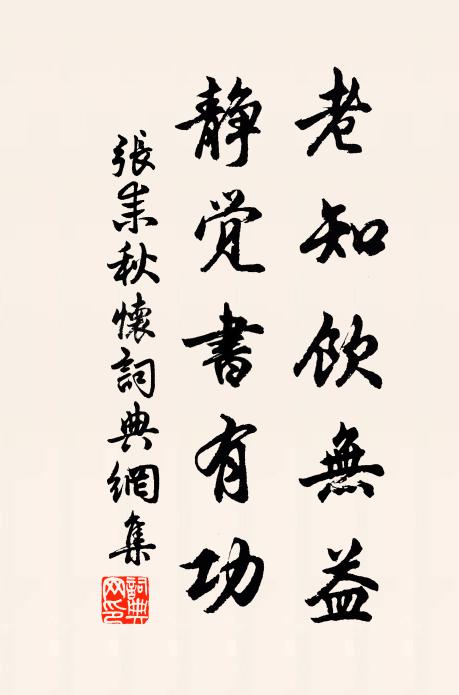 老知飲無益
静觉書有功
張耒秋懷詞典網集
詞典网印